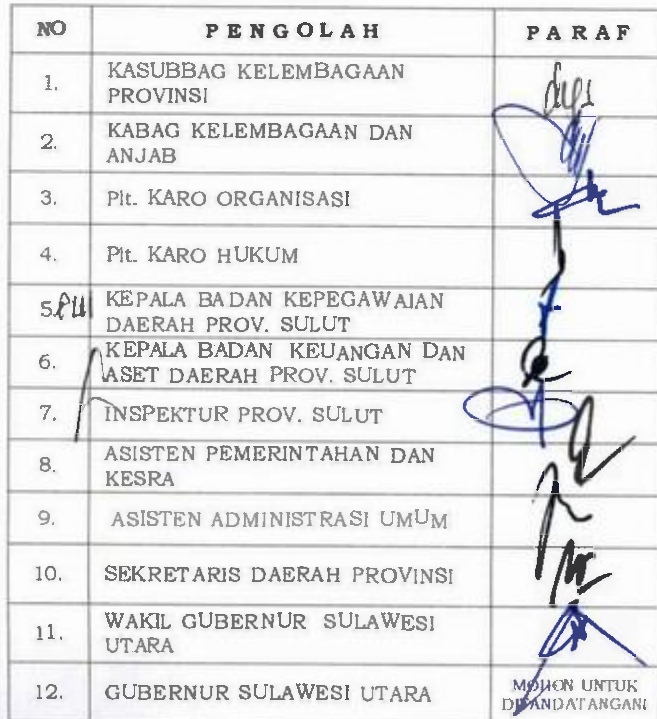 NO PENGOLAH PARAF
1. KASUBBAG KELEMBAGAAN
PROVINSI
2. KABAG KELEMBAGAAN DAN
ANJAB
3. Plt. KARO ORGANISASI
4. Plt. KARO HUKUM
5. KEPALA BADAN KEPEGAWAIAN
DAERAH PROV. SULUT
6. KEPALA BADAN KEUANGAN DAN
ASET DAERAH PROV. SULUT
7. INSPEKTUR PROV. SULUT
8. ASISTEN PEMERINTAHAN DAN
KESRA
9. ASISTEN ADMINISTRASI UMUM
10. SEKRETARIS DAERAH PROVINSI
11. WAKIL GUBERNUR SULAWESI
UTARA
12. GUBERNUR SULAWESI UTARA
MOHON UNTUK
DITANDATANGANI